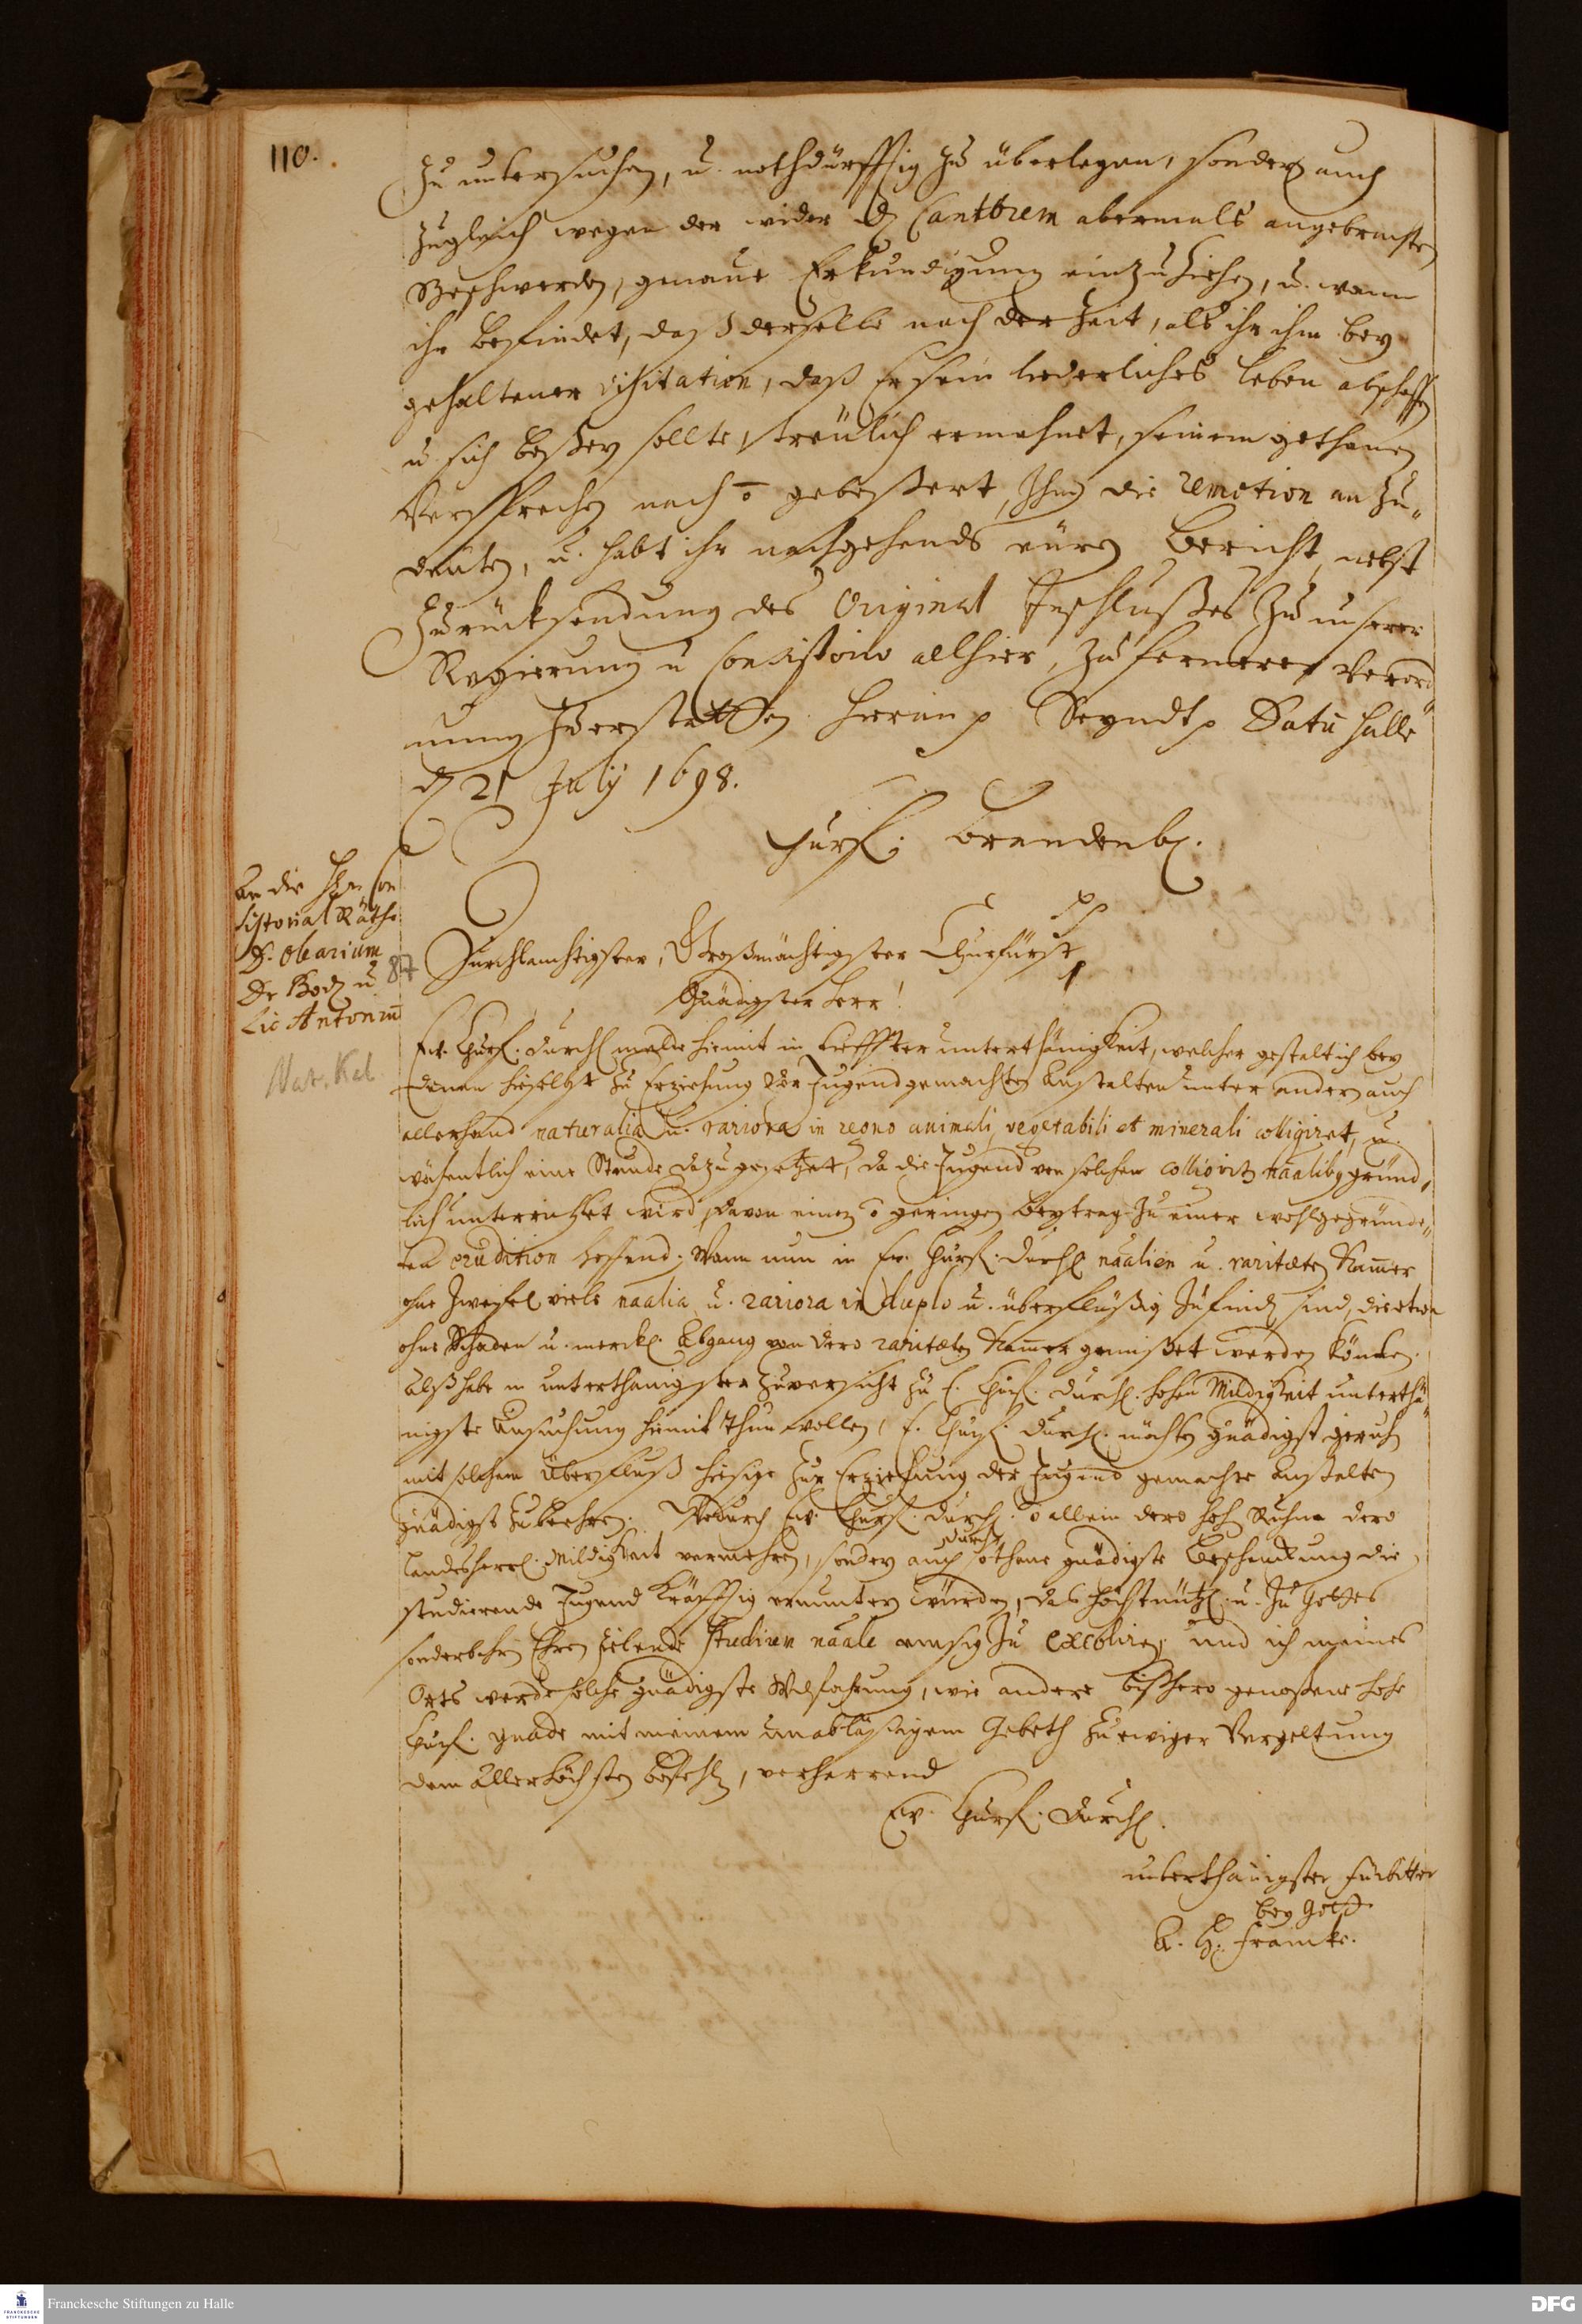 110.
zu untersuchen, u. nothdürfftig zu überlegen, sondern auch
zugleich wegen der wider den Cantorem abermals angebrachten
Beschwerden, genaue Erkundigung einzuziehen, u. wann
ihr befindet, daß derselbe nach der Zeit, als ihr ihn bey
gehaltener Visitation, daß Er sein liederliches Leben abschaffen
u. sich beßern sollte, treülich ermahnet, seinem gethanen
Versprechen nach õ gebeßert, Ihm die remotion an zu„
deuten, u. habt ihr nachgehends euren Bericht nebst
Zurücksendung des Original Inschlußes zu unserer
Regierung u Consistorio allhier, zu fernerer Verord
nung zu erstatten. Hieran p Seyndt p Datũ Halle
d 21 July 1698.
Churf. Brandenb.
An die Hrn Con
sistorial Räthe
D. Olearium
Dr Bode u
Lic Antoniũ
87
Nat. Kab
Durchlauchtigster, Großmächtigster Churfürst
Gnädigster Herr!
Ew. Churf. Durchl melde hiemit in tieffster unterthänigkeit, welcher gestalt ich bey
denen hieselbst zu Erziehung der Jugend gemachten Anstalten unter andern auch
allerhand naturalia u. rariora in regno animali, vegetabili et minerali colligiret, u.
wöchentlich eine Stunde dazu gesetzet, da die Jugend von solchen naalibq gründ„
lich unterrichtet wird, davon einen õ geringen Beytrag zu einer wohlgegründe„
ten erudition hoffend. Wann nun in Ew. Churf. Durchl naalien u. raritæten Kam̃er
ohne Zweifel viele naalia u. rariora in duplo u. überflüßig zu finden sind, die etwa
ohne Schaden u. merckl. Abgang von dero raritæten Kam̃er gemißet werden können.
Alß habe in unterthänigster Zuversicht zu E. Churf. Durchl. hohen Mildigkeit unterthä„
nigste Ansuchung hiemit thun wollen, E. Churf. Durchl. möchten gnädigst geruhen
mit solchem Überfluß hiesige zur Erziehung der Jugend gemachte Anstalten
gnädigst zu beehren. Wodurch Ew. Churf. Durchl. õ allein dero hohen Ruhm dero
Landesherrl. Mildigkeit vermehren, sondern auch durch sothane gnädigste Beschenckung die
studierende Jugend kräfftig ermuntern würden, das höchstnützl. u. zu Gottes
sonderbahren Ehren zielende Studium naale emsig zu excoliren, und ich meines
Orts werde solche gnädigste Wilfahrung, wie andere bißhero genoßene hohe
Churf. gnade mit meinem unabläßigem Gebeth zu ewiger Vergeltung
dem Allerhöchsten befehlen, verharrend
Ew. Churf. Durchl.
unterthänigster fürbitter
bey Gott
A. H. Francke.
Franckesche Stiftungen zu Halle
FRANCKESCHE STIFTUNGEN
DFG